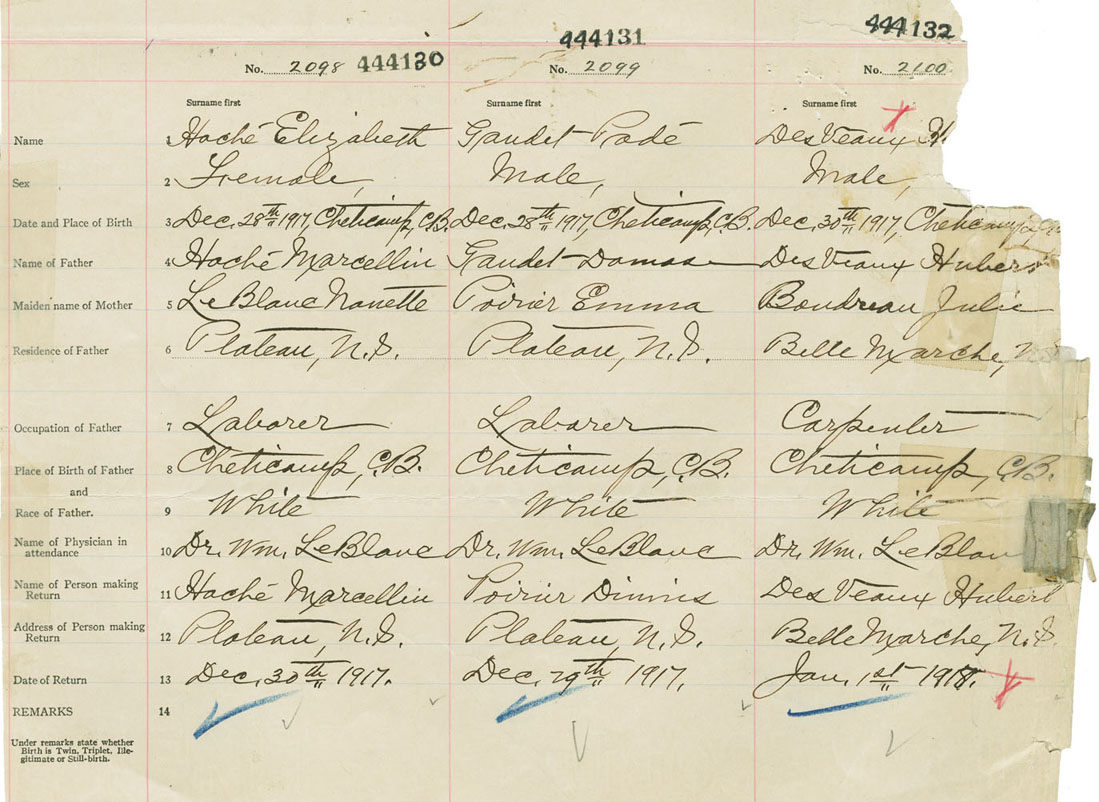 444130 444131 444132
No. 2098 No. 2099 No. 2100
Surname first Surname first Surname first
Name 1 Haché Elizabeth Gaudet Padé DesVeaux H
Sex 2 Female, Male, Male,
Date and Place of Birth 3 Dec. 28th 1917, Cheticamp, C.B. Dec. 28th 1917, Cheticamp, C.B. Dec. 30th 1917, Cheticamp,
Name of Father 4 Haché Marcellin Gaudet Damase DesVeaux Hubert
Maiden name of Mother 5 LeBlanc Nanette Poirier Emma Boudreau Julie
Residence of Father 6 Plateau, N.S. Plateau, N.S. Belle Marche, N
Occupation of Father 7 Laborer Laborer Carpenter
Place of Birth of Father 8 Cheticamp, C.B. Cheticamp, C.B. Cheticamp, C.B.
and
Race of Father. 9 White White White
Name of Physician in
attendance 10 Dr. Wm. LeBlanc Dr. Wm. LeBlanc Dr. Wm. LeBlan
Name of Person making
Return 11 Haché Marcellin Poirier Dinnis DesVeaux Hubert
Address of Person making
Return 12 Plateau, N.S. Plateau, N.S. Belle Marche, N.S.
Date of Return 13 Dec. 30th 1917. Dec. 29th 1917. Jan. 1st 1918.
REMARKS 14
Under remarks state whether
Birth is Twin, Triplet, Ille-
gitimate or Still-birth.